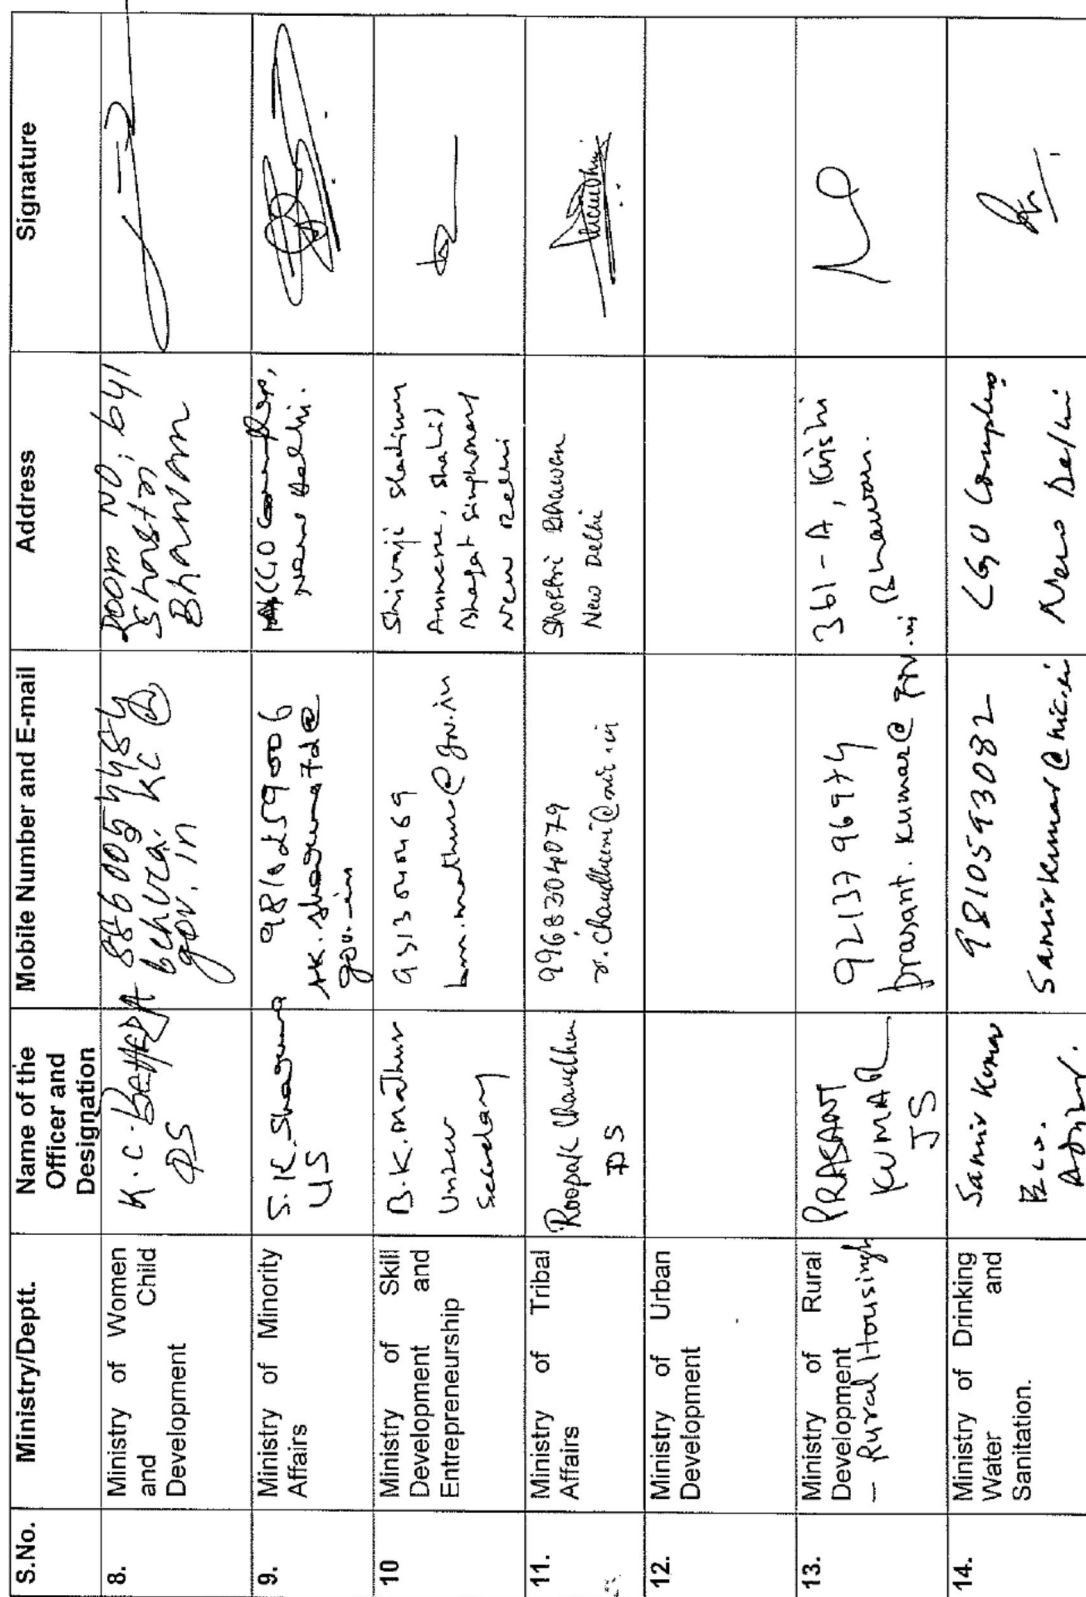 S.No.
Ministry/Deptt.
Name of the
Officer and
Designation
Mobile Number and E-mail
Address
Signature
8.
Ministry of Women
and Child
Development
K.C. BEHERA
DS
8860054484
behera.kc@
gov.in
Room No; 641
Shastri
Bhawan
9.
Ministry of Minority
Affairs
S.K. Sharma
US
9818259006
sk.sharma72@
gov.in
CGO Complex,
New Delhi.
10
Ministry of Skill
Development and
Entrepreneurship
B.K. Mathur
Under
Secretary
bm.mathur@gov.in
Shivaji Stadium
Annexe, Shahid
Bhagat Singh Marg
New Delhi
11.
Ministry of Tribal
Affairs
Roopak Chaudhuri
DS
9968304079
r.chaudhuri@nic.in
Shastri Bhawan
New Delhi
12.
Ministry of Urban
Development
13.
Ministry of Rural
Development
— Rural Housing
PRASANT
KUMAR
JS
9213796974
prasant.kumar@gov.in
361-A, Krishi
Bhawan.
14.
Ministry of Drinking
Water and
Sanitation.
Samir Kumar
9810593082
Samirkumar@nic.in
CGO Complex
New Delhi